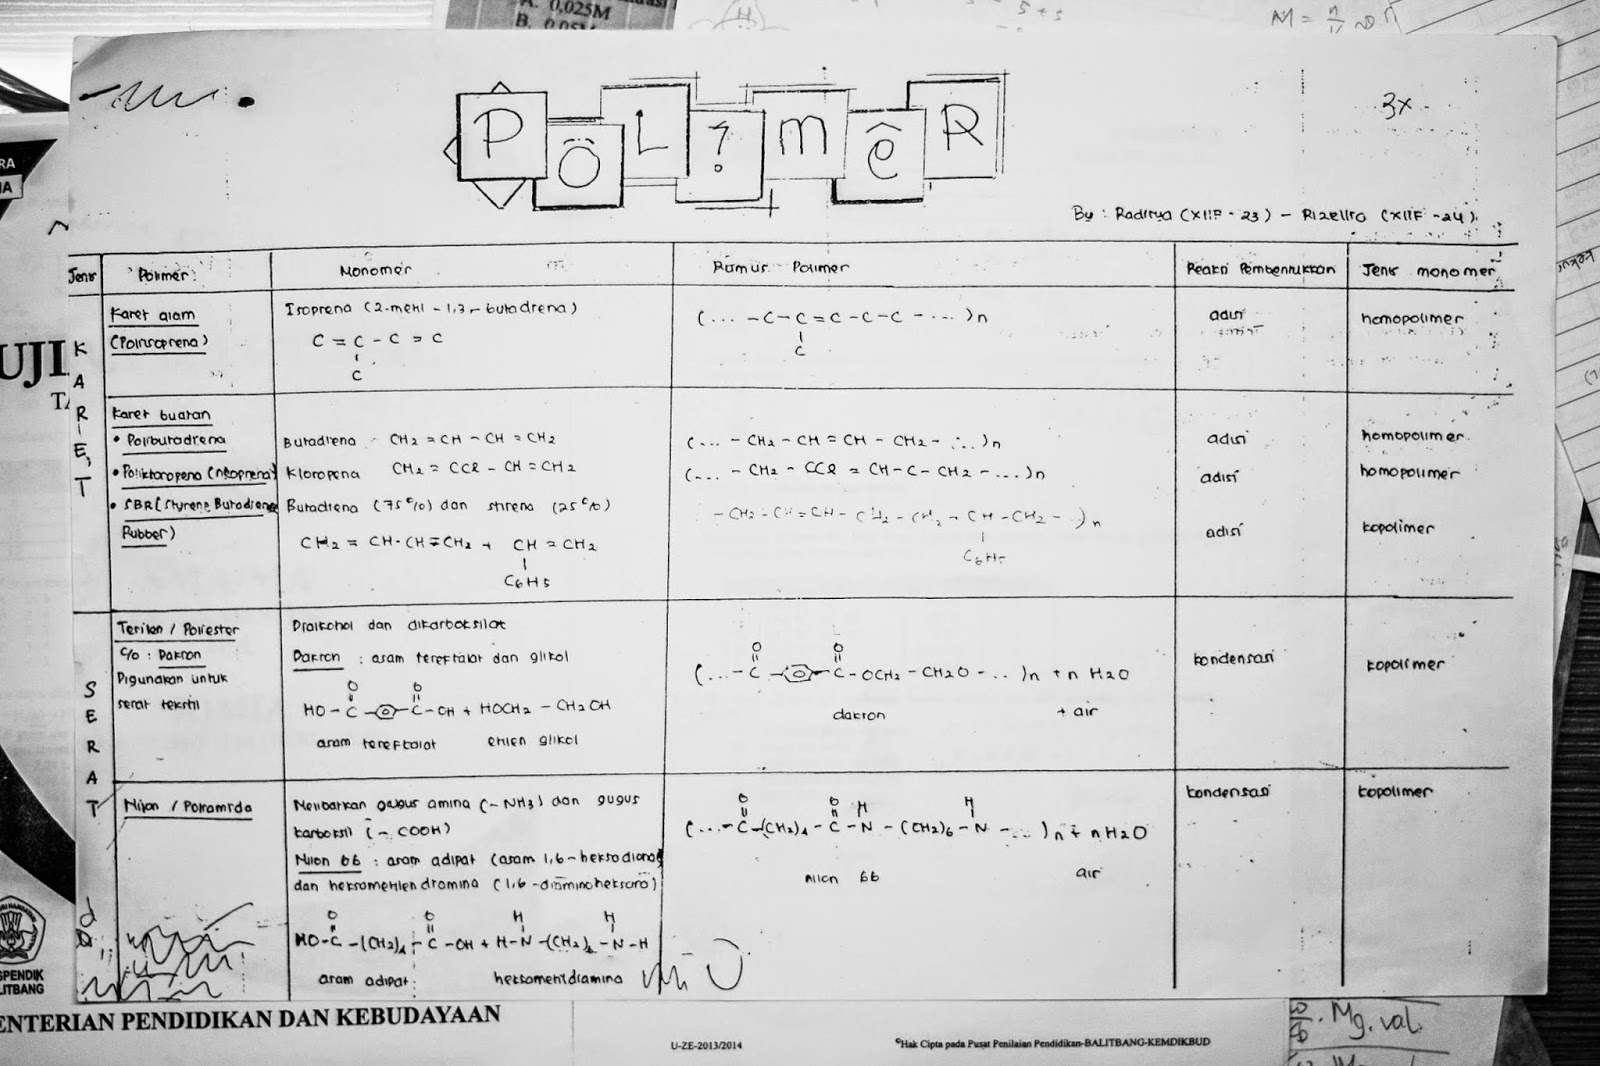 A. 0,025M
B. 0,05M
3x
POL?MER
By : Raditya (XIIF - 23) - Rizellro (XIIF - 24).
Jenis Polimer Monomer Rumus Polimer Reaksi Pembentukkan Jenis monomer
KARET
Karet alam
(Poliisoprena)
Isoprena (2-metil - 1,3 - butadiena)
C = C - C = C
C
(... - C - C = C - C - C - ... )n
C
adisi
homopolimer
Karet buatan
• Polibutadiena
Butadiena CH2 = CH - CH = CH2
(... - CH2 - CH = CH - CH2 - ... )n
adisi
homopolimer
• Polikloropena (neoprena)
Kloropena CH2 = CCl - CH = CH2
(... - CH2 - CCl = CH - C - CH2 - ...)n
adisi
homopolimer
• SBR (Styrene Butadiene
Rubber)
Butadiena (75%) dan stirena (25%)
CH2 = CH - CH = CH2 + CH = CH2
C6H5
- CH2 - CH = CH - CH2 - CH2 - CH - CH2 - )n
C6H5
adisi
kopolimer
SERAT
Terilen / Poliester
C/o : Dakron
Digunakan untuk
serat tekstil
Dialkohol dan dikarboksilat
Dakron : asam tereftalat dan glikol
O O
HO - C - C - OH + HOCH2 - CH2OH
asam tereftalat etilen glikol
O O
(... - C - C - OCH2 - CH2O - ... )n + n H2O
dakron + air
kondensasi
kopolimer
Nilon / Poliamida
Melibatkan gugus amina (- NH3) dan gugus
karboksil (- COOH)
Nilon 66 : asam adipat (asam 1,6 - heksadionat
dan heksametilen diamina (1,6 - diaminoheksana)
O O H H
HO - C - (CH2)4 - C - OH + H - N - (CH2)6 - N - H
asam adipat heksametildiamina
O O H H
(... - C - (CH2)4 - C - N - (CH2)6 - N - ... )n + n H2O
nilon 66 air
kondensasi
kopolimer
UJI
SPENDIK
LITBANG
ENTERIAN PENDIDIKAN DAN KEBUDAYAAN
U-ZE-2013/2014
©Hak Cipta pada Pusat Penilaian Pendidikan-BALITBANG-KEMDIKBUD
Mg.val.